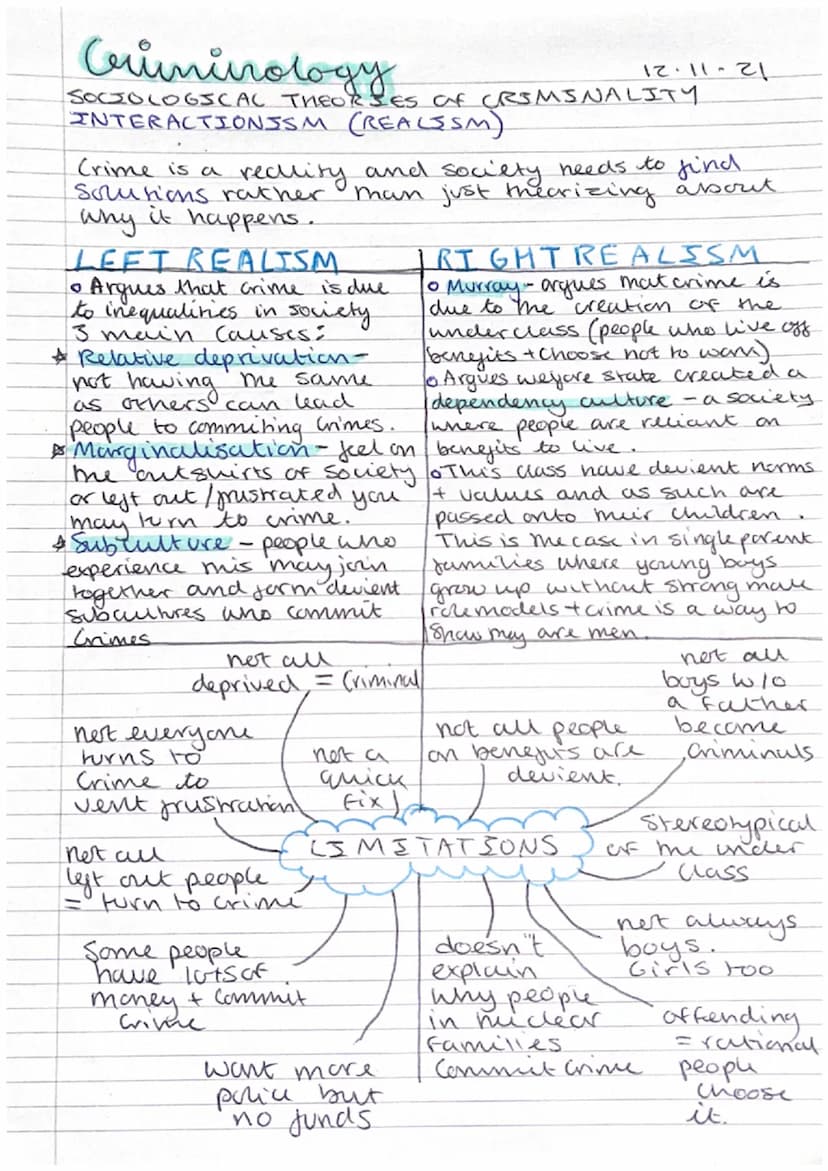 Criminology
12.11.21
SOCIOLOGICAL THEORIES OF CRIMINALITY
INTERACTIONISM (REALISM)
Crime is a reality and society needs to find
solutions rather than just theorizing about
why it happens.
LEFT REALISM
• Argues that crime is due
to inequalities in society
3 main causes:
☆ Relative deprivation-
not having the same
as others can lead
people to commiting crimes.
☆ Marginalisation - feel on
the outskirts of society
or left out/frustrated you
may turn to crime.
☆ Subculture - people who
experience this may join
together and form devient
subcultures who commit
crimes
RIGHT REALISM
• Murray - argues that crime is
due to the creation of the
underclass (people who live off
benefits + choose not to work)
• Argues welfare state created a
dependency culture - a society
where people are reliant on
benefits to live.
• This class have devient norms
+ values and as such are
passed onto their children.
This is the case in single parent
families where young boys
grow up without strong male
role models + crime is a way to
show they are men.
not all
deprived = criminal
not everyone
turns to
crime to
vent frustration
not a
quick
fix
not all people
on benefits are
devient.
not all
boys w/o
a father
become
criminals
LIMITATIONS
Stereotypical
of the under
class
not all
left out people
= turn to crime
Some people
have lots of
money + commit
crime
want more
police but
no funds
doesn't
explain
why people
in nuclear
families
commit crime
not always
boys.
Girls too
offending
= rational
people
choose
it.